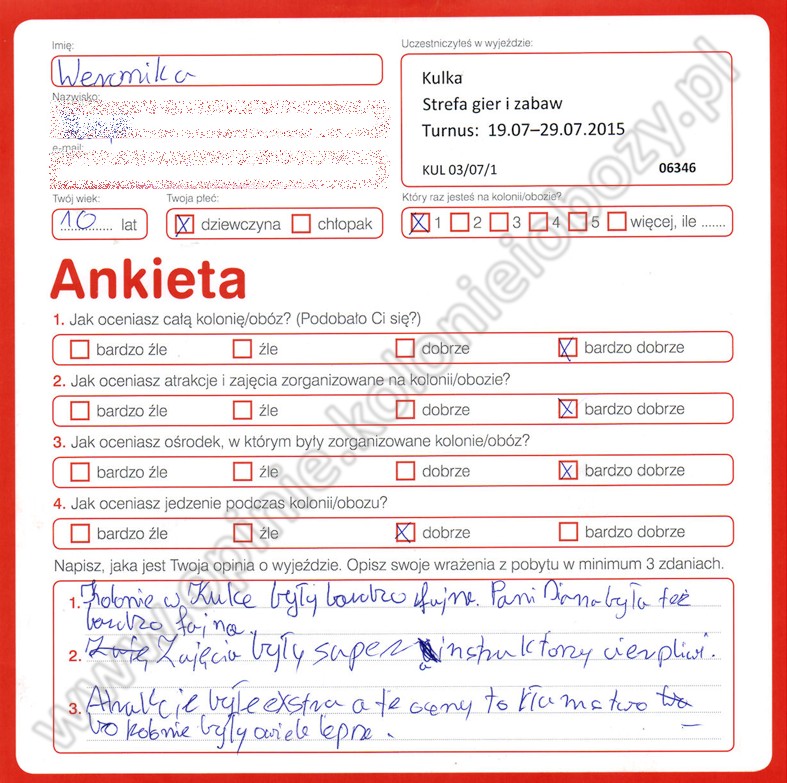 Imię:
Weronika
Nazwisko:
e-mail:
Twój wiek:
10 lat
Twoja płeć:
dziewczyna chłopak
Uczestniczyłeś w wyjeździe:
Kulka
Strefa gier i zabaw
Turnus: 19.07–29.07.2015
KUL 03/07/1 06346
Który raz jesteś na kolonii/obozie?
1 2 3 4 5 więcej, ile .......
Ankieta
1. Jak oceniasz całą kolonię/obóz? (Podobało Ci się?)
bardzo źle źle dobrze bardzo dobrze
2. Jak oceniasz atrakcje i zajęcia zorganizowane na kolonii/obozie?
bardzo źle źle dobrze bardzo dobrze
3. Jak oceniasz ośrodek, w którym były zorganizowane kolonie/obóz?
bardzo źle źle dobrze bardzo dobrze
4. Jak oceniasz jedzenie podczas kolonii/obozu?
bardzo źle źle dobrze bardzo dobrze
Napisz, jaka jest Twoja opinia o wyjeździe. Opisz swoje wrażenia z pobytu w minimum 3 zdaniach.
1. Kolonie w Kulce były bardzo fajne. Pani Diana była też
bardzo fajna.
2. Zajęcia były super a instruktorzy cierpliwi.
3. Atrakcje były extra a te oceny to kłamstwo
bo kolonie były o wiele lepsze.
www.opinie.kolonieiobozy.pl